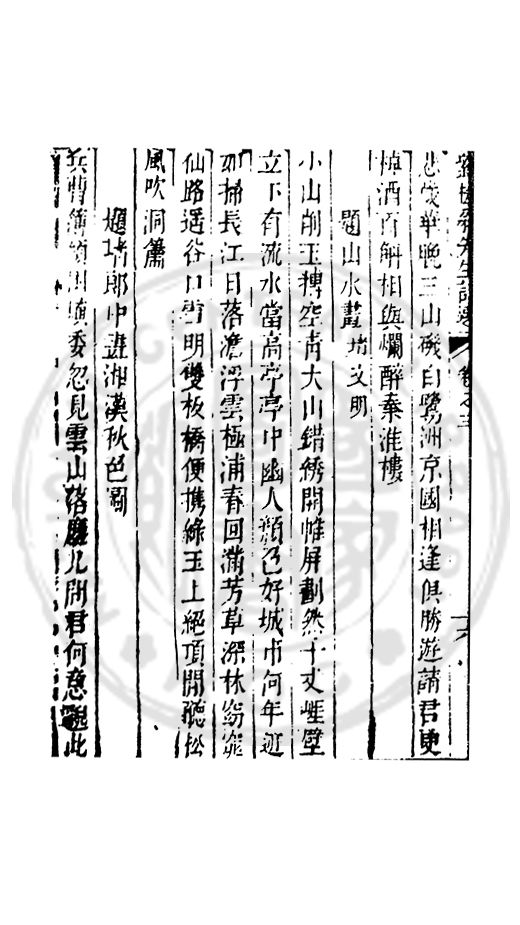 悲歲華晚三山磯白鷺洲京國相逢俱勝遊請君更
酒百斛相與爛醉秦淮樓
題山水畫 堵文明
小山削玉摶空青大山錯綉開帷屏劃然十丈崕壁
立下有流水當高亭亭中幽人顏色好城市何年逝
如掃長江日落澹浮雲極浦春回滿芳草深林窈窕
仙路遥谷口雪明雙板橋便携綠玉上絕頂閒聽松
風吹洞簫
題堵郎中畫湘漢秋色圖
兵曹簿領委忽見雲山落塵几問君何意寫此
卷之三